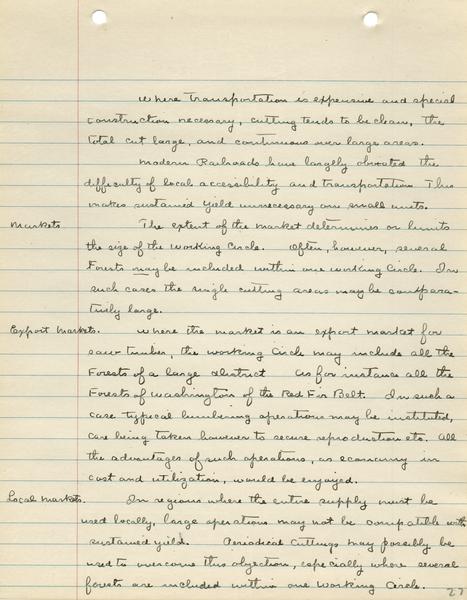 Where transportation is expensive and special
construction necessary, cutting tends to be clean, the
total cut large, and continuous over large areas.
Modern Railroads have largely obviated the
difficulty of local accessibility and transportation. This
makes sustained yield unnecessary on small units.
Markets. The extent of the market determines or limits
the size of the Working Circle. Often, however, several
Forests may be included within one Working Circle. In
such cases the single cutting areas may be compara-
tively large.
Export Markets. Where the market is an export market for
saw timber, the Working Circle may include all the
Forests of a large District as for instance all the
Forests of Washington of the Red Fir Belt. In such a
case typical lumbering operations may be instituted,
care being taken however to secure reproduction etc. All
the advantages of such operations, as economy in
cost and utilization, would be enjoyed.
Local Markets. In regions where the entire supply must be
used locally, large operations may not be compatible with
sustained yield. Periodical Cuttings may possibly be
used to overcome this objection, especially where several
forests are included within one Working Circle.
27